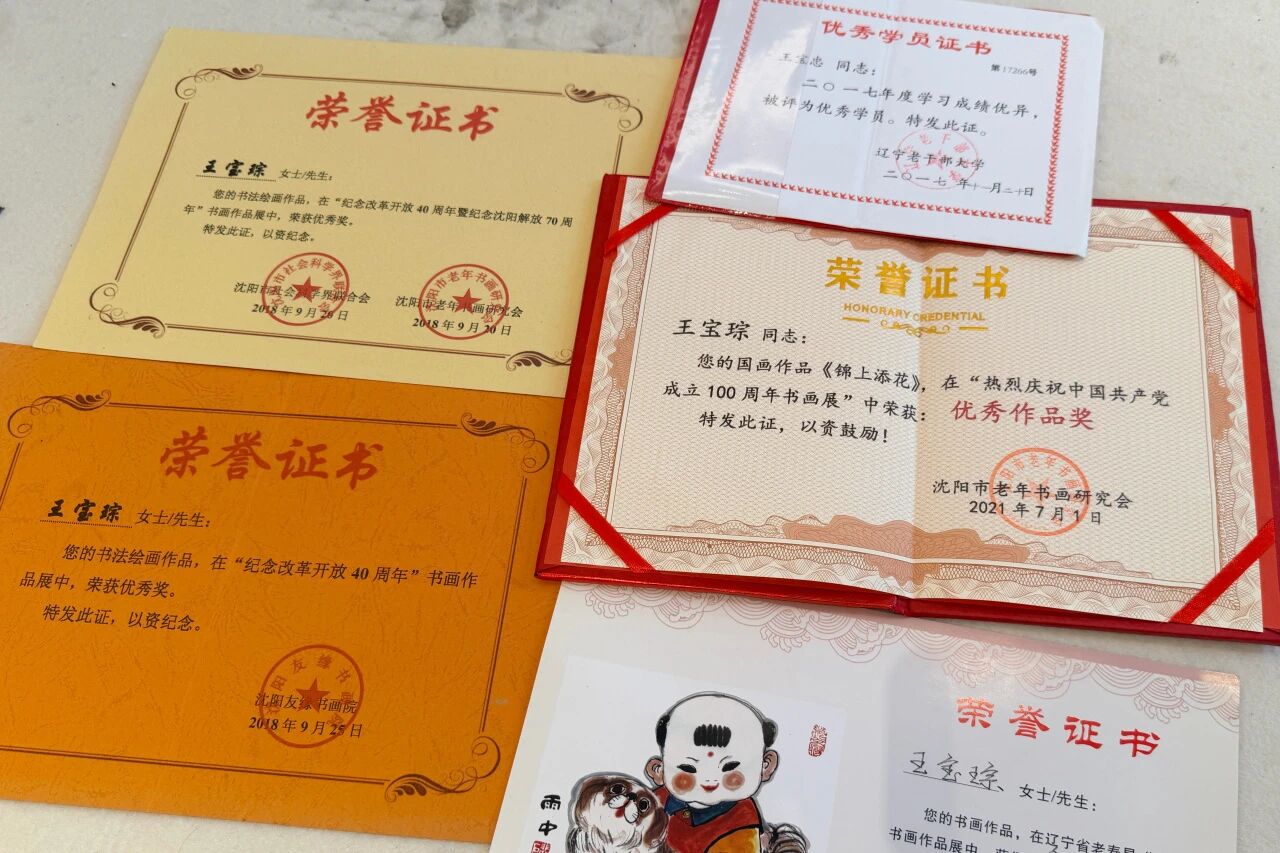 荣誉证书
王宝琮 女士/先生：
您的书法绘画作品，在“纪念改革开放40周年暨纪念沈阳解放70周
年”书画作品展中，荣获优秀奖。
特发此证，以资纪念。
沈阳市社会科学界联合会
2018年9月20日
沈阳市老年书画研究会
2018年9月20日
优秀学员证书
第17266号
王宝忠 同志：
二〇一七年度学习成绩优异，
被评为优秀学员。特发此证。
辽宁老干部大学
二〇一七 年十一月二十日
荣誉证书
HONORARY CREDENTIAL
王宝琮 同志：
您的国画作品《锦上添花》，在“热烈庆祝中国共产党
成立100周年书画展”中荣获：优秀作品奖
特发此证，以资鼓励！
沈阳市老年书画研究会
2021年7月1日
荣誉证书
王宝琮 女士/先生：
您的书法绘画作品，在“纪念改革开放40周年”书画作
品展中，荣获优秀奖。
特发此证，以资纪念。
沈阳友缘书画院
2018年9月25日
荣誉证书
王宝琮 女士/先生：
您的书画作品，在辽宁省老
书画作品展中，
雨中